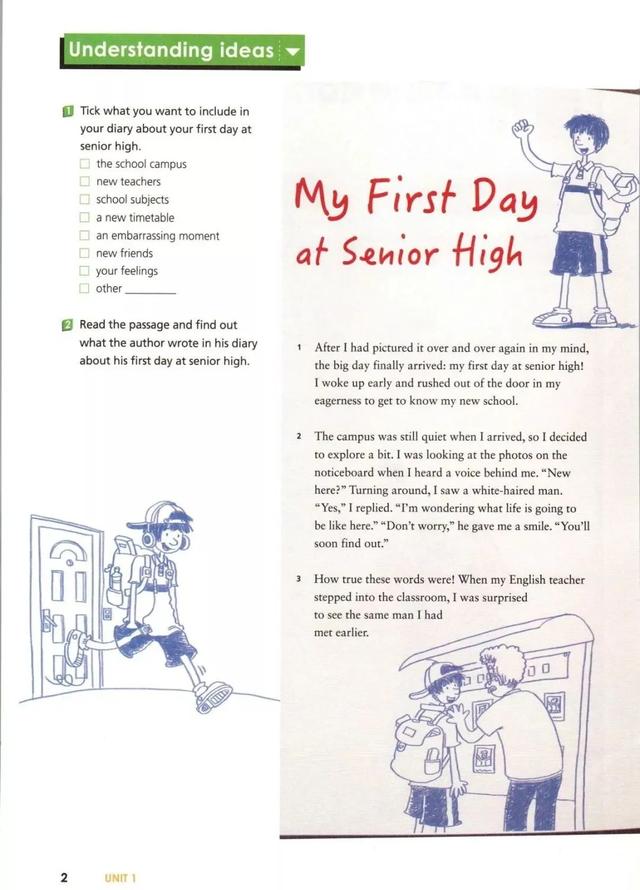 Understanding ideas
1 Tick what you want to include in
your diary about your first day at
senior high.
the school campus
new teachers
school subjects
a new timetable
an embarrassing moment
new friends
your feelings
other ________
2 Read the passage and find out
what the author wrote in his diary
about his first day at senior high.
My First Day
at Senior High
1 After I had pictured it over and over again in my mind,
the big day finally arrived: my first day at senior high!
I woke up early and rushed out of the door in my
eagerness to get to know my new school.
2 The campus was still quiet when I arrived, so I decided
to explore a bit. I was looking at the photos on the
noticeboard when I heard a voice behind me. “New
here?” Turning around, I saw a white-haired man.
“Yes,” I replied. “I’m wondering what life is going to
be like here.” “Don’t worry,” he gave me a smile. “You’ll
soon find out.”
3 How true these words were! When my English teacher
stepped into the classroom, I was surprised
to see the same man I had
met earlier.
2 UNIT 1